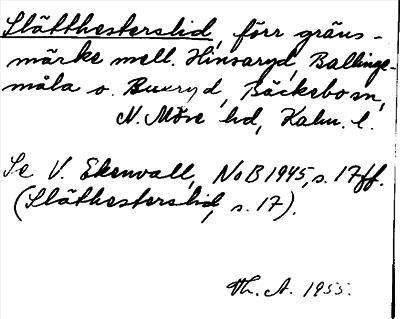 Slätthesterslid, förr gräns-
märke mell. Hinsaryd, Ballinge-
måla o. Buaryd, Bäckebom,
N. Möre hd, Kalm. l.
Se V. Ekenvall, NoB 1945, s. 17ff.
(Släthesterslid, s. 17).
Th. A. 1955.